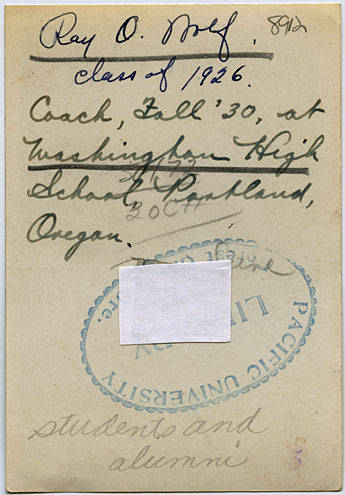 Ray O. Wolf.
8912
class of 1926.
Coach, Fall '30, at
Washington High
School, Portland,
Oregon.
20CH
PACIFIC UNIVERSITY
students and
alumni